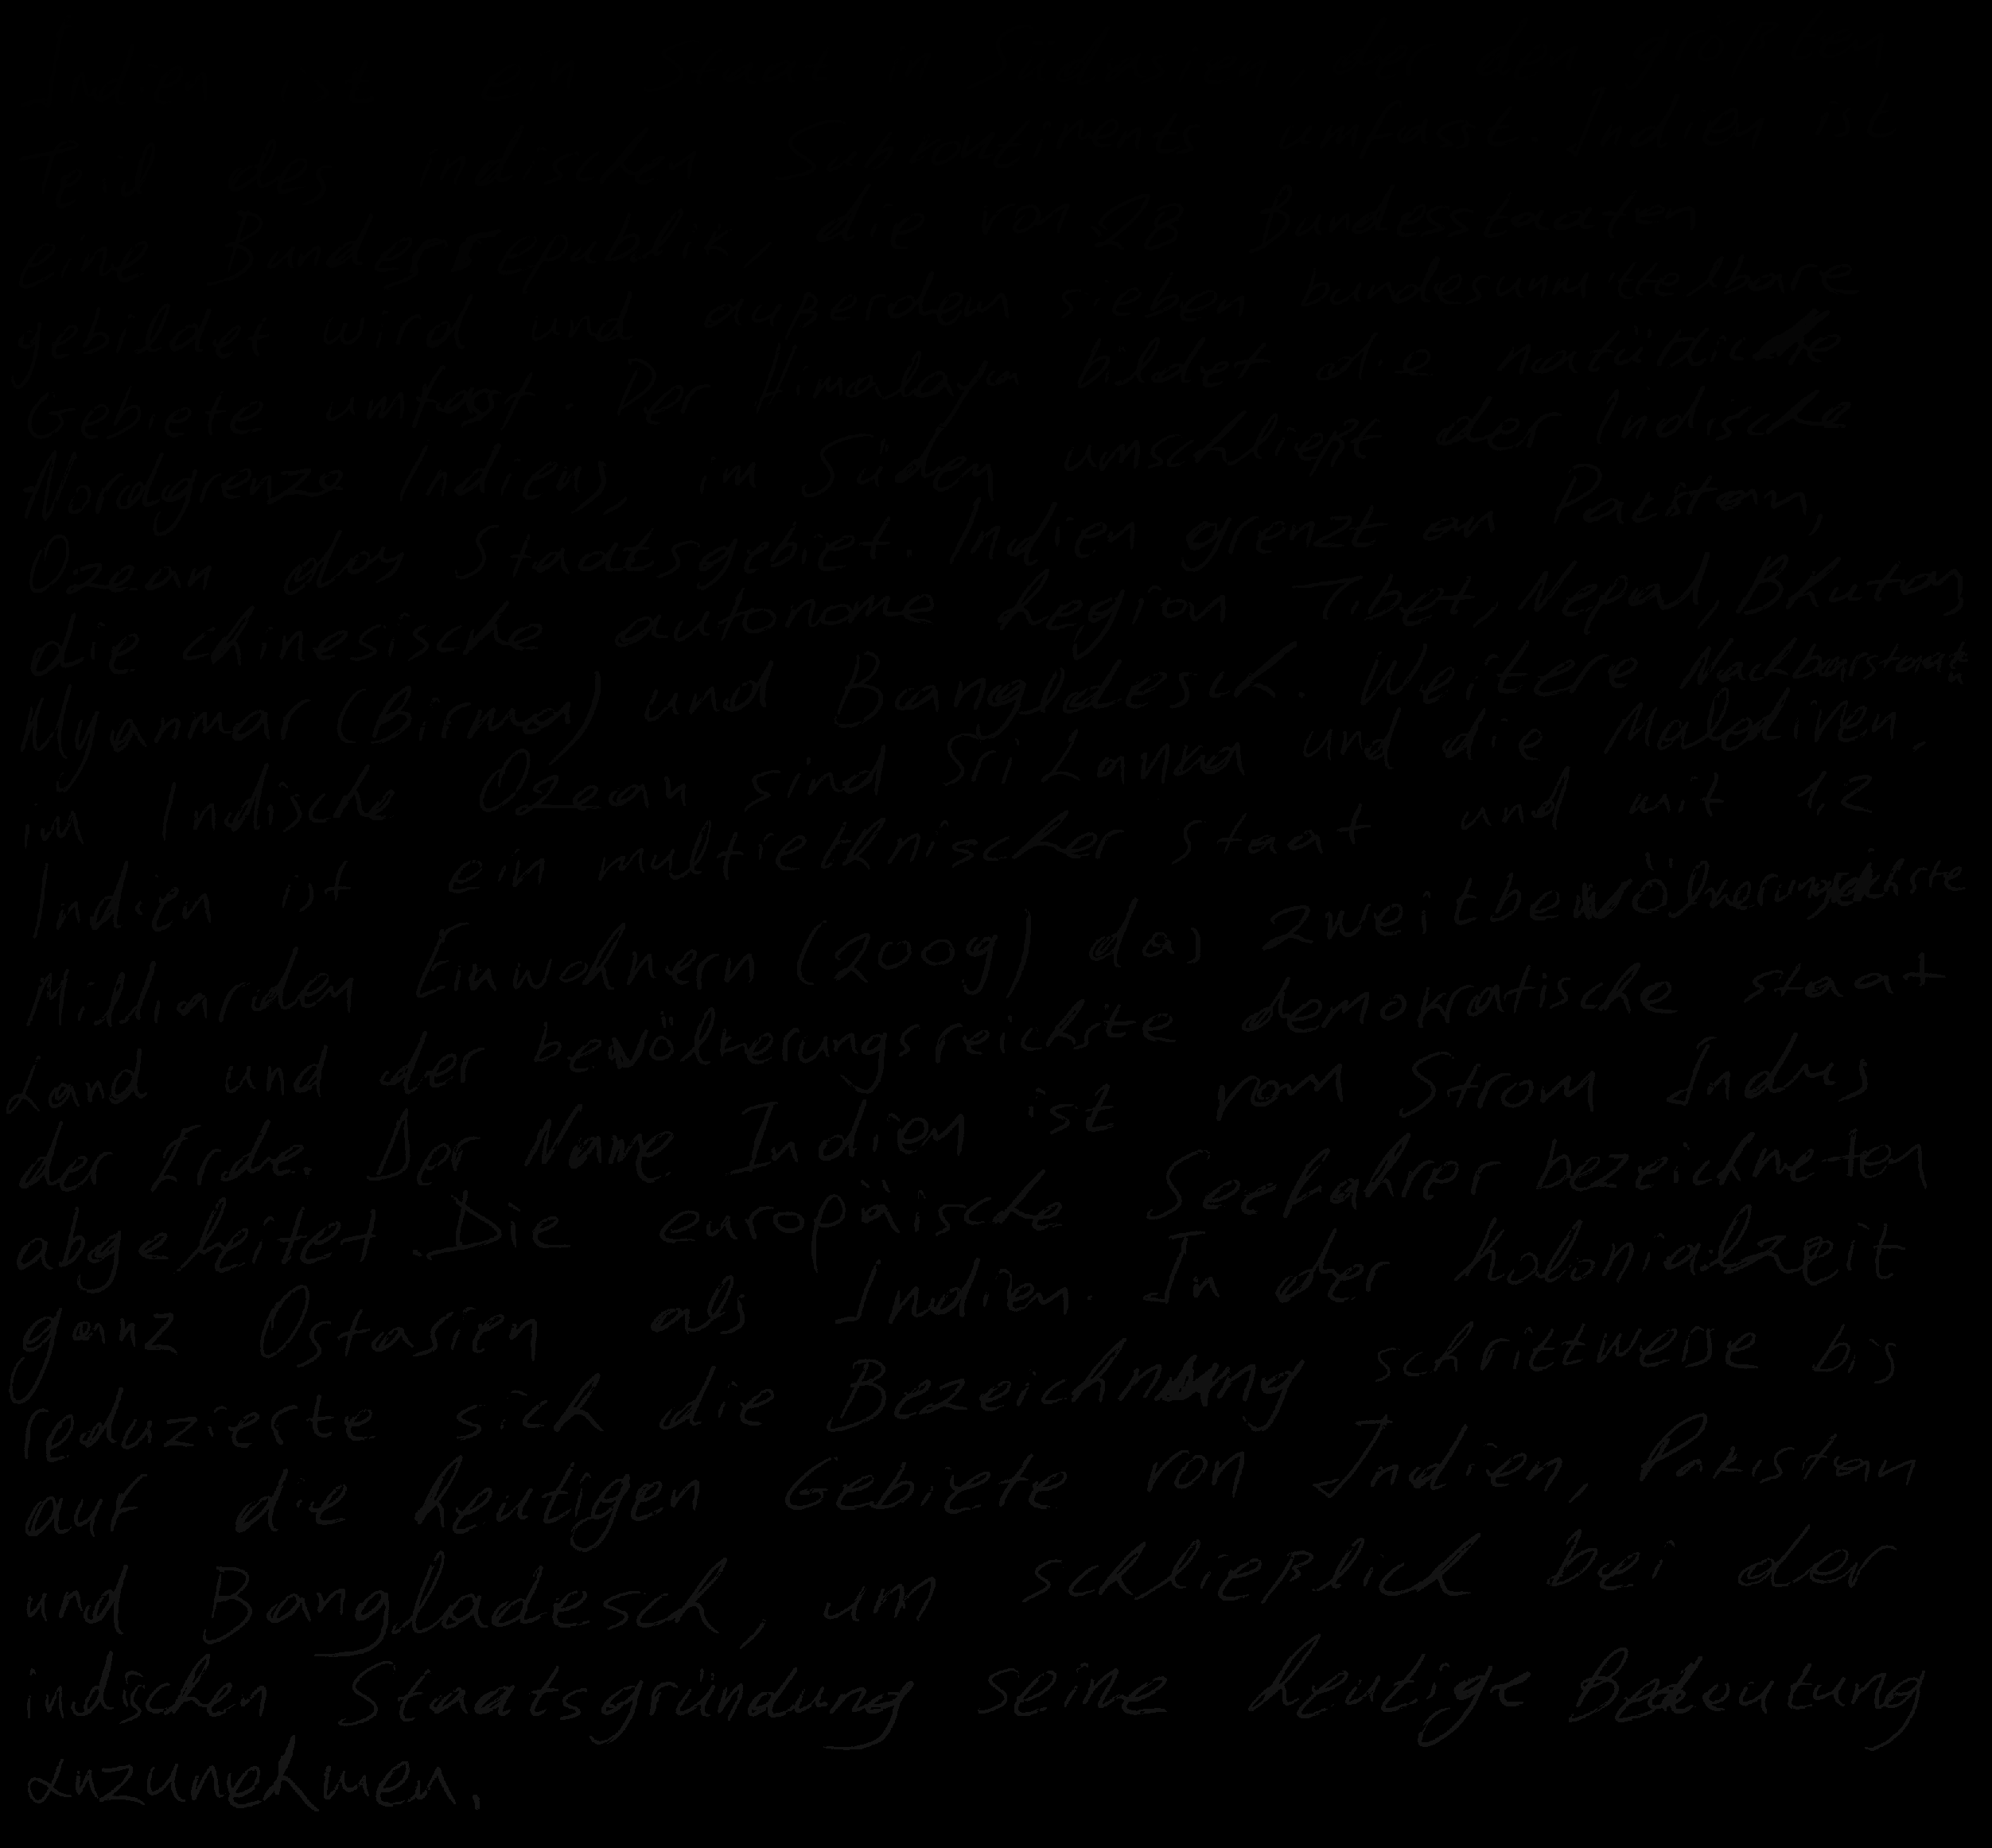 Teil des indischen Subkontinents umfasst. Indien ist
eine Bundesrepublik, die von 28 Bundesstaaten
gebildet wird und außerdem sieben bundesunmittelbare
Gebiete umfasst. Der Himalaya bildet die natürliche
Nordgrenze Indiens, im Süden umschließt der Indische
Ozean das Staatsgebiet. Indien grenzt an Pakistan,
die chinesische autonome Region Tibet, Nepal, Bhutan,
Myanmar (Birma) und Bangladesch. Weitere Nachbarstaaten
im Indische Ozean sind Sri Lanka und die Malediven.
Indien ist ein multiethnischer Staat und mit 1,2
Milliarden Einwohnern (2009) das zweitbevölkerungsreichste
Land und der bevölkerungsreichste demokratische Staat
der Erde. Der Name Indien ist vom Strom Indus
abgeleitet. Die europäische Seefahrer bezeichneten
ganz Ostasien als Indien. In der Kolonialzeit
reduzierte sich die Bezeichnung schrittweise bis
auf die heutigen Gebiete von Indien, Pakistan
und Bangladesch, um schließlich bei der
indischen Staatsgründung seine heutige Bedeutung
anzunehmen.